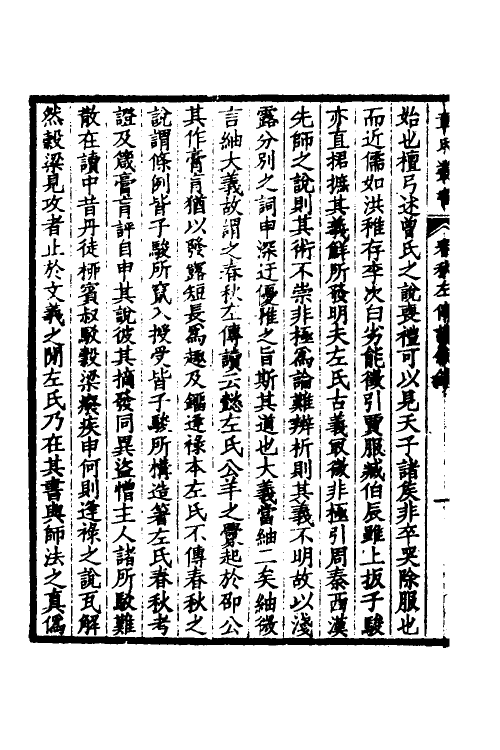 章氏叢書 春秋左傳讀敘錄 一
始也檀弓述曾氏之說喪禮可以見天子諸矦非卒哭除服也
而近儒如洪稚存李次白劣能徵引賈服臧伯辰雖上扳子駿
亦直捃摭其義鮮所發明夫左氏古義冣微非極引周秦西漢
先師之說則其術不崇非極爲論難辨析則其義不明故以淺
露分別之詞申深迂優雅之旨斯其道也大義當紬二矣紬微
言紬大義故謂之春秋左傳讀云懿左氏公羊之釁起於邵公
其作膏肓猶以發露短長爲趣及鎦逢祿本左氏不傳春秋之
說謂條例皆子駿所竄入授受皆子駿所構造箸左氏春秋考
證及箴膏肓評自申其說彼其摘發同異盜憎主人諸所駮難
散在讀中昔丹徒桺賓叔駮穀梁癈疾申何則逢祿之說瓦解
然穀梁見攻者止於文義之閒左氏乃在其書與師法之真僞